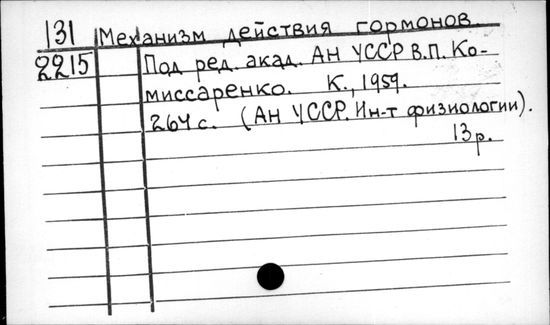 131 Механизм действия гормонов.
2215 Под ред. акад. АН УССР В.П. Ко-
миссаренко. К., 1959.
264 с. (АН УССР. Ин-т физиологии).
13 р.